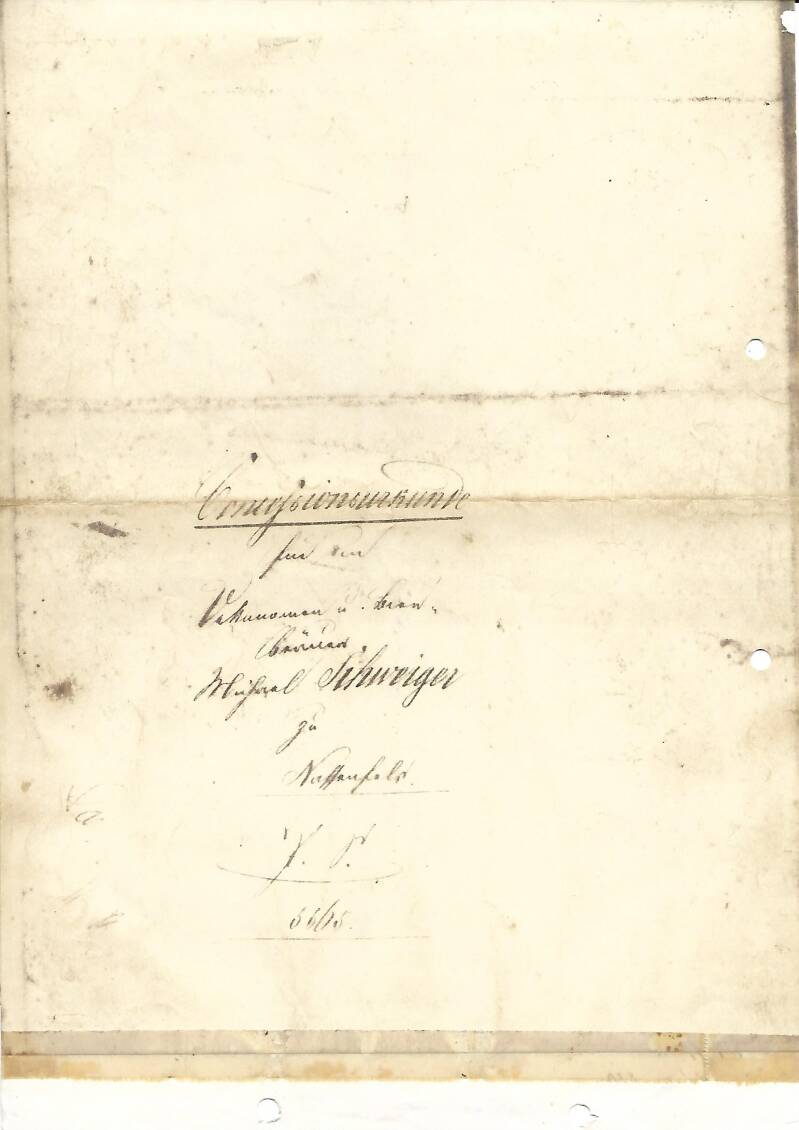 Concessionsurkunde
für den
Oekonomen u. Bier-
bräuer
Michael Schweiger
zu
Nassenfels.
5565.